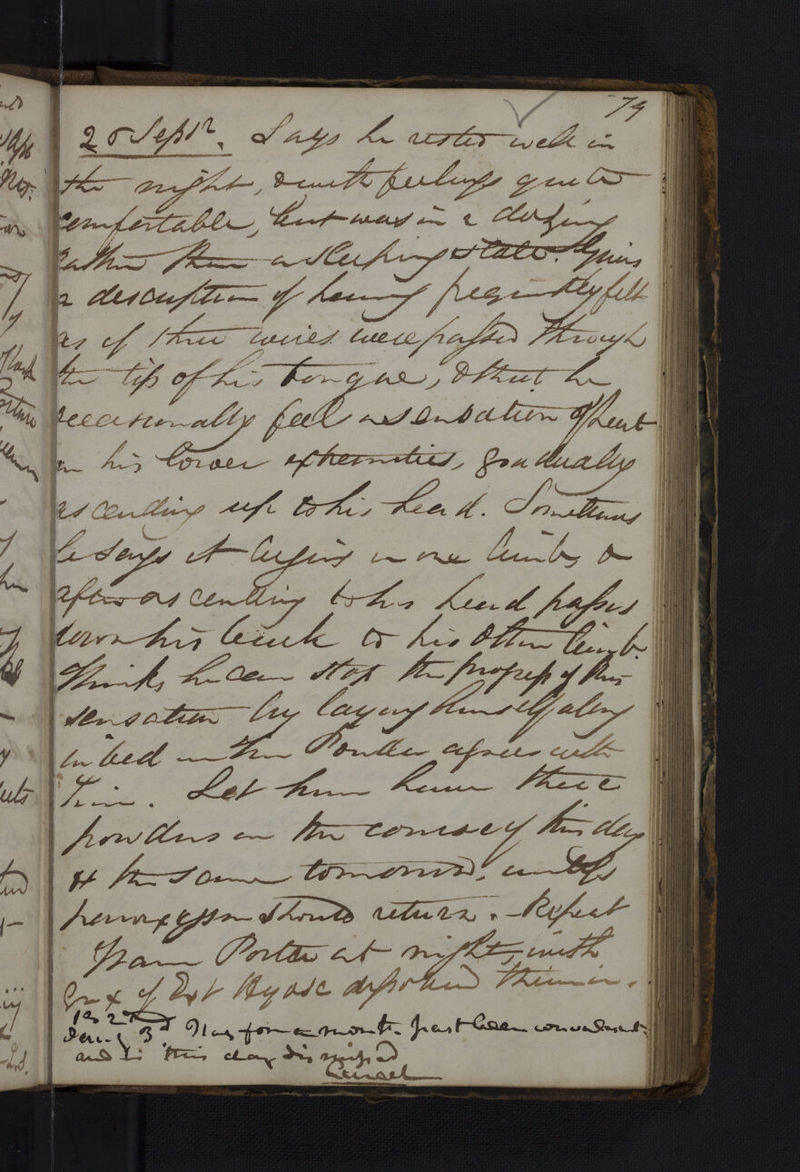 79
20 Septr. Says he rested well in
the night, & with feelings quite
comfortable, but was in a dozing
rather than a sleeping state. Gives
a description of having frequently felt
as if three wires were passed through
the tip of his tongue, & that he
occasionally feels a sensation of heat
in his lower extremities, gradually
ascending up to his head. Sometimes
he says it begins in one limb, &
after ascending to his head passes
down his back to his other limb.
Thinks he can stop the progress of this
sensation by laying himself along
in bed. The Powder agrees with
him. Let him have three
powders in the course of this day
& the same tomorrow, unless
paroxysm should return. - Repeat
Warm Porter at night, with
Gr x of Ext Hyosc dissolved therein.
3d Has for a month past been convalescent
and is this day dismissed
Cured